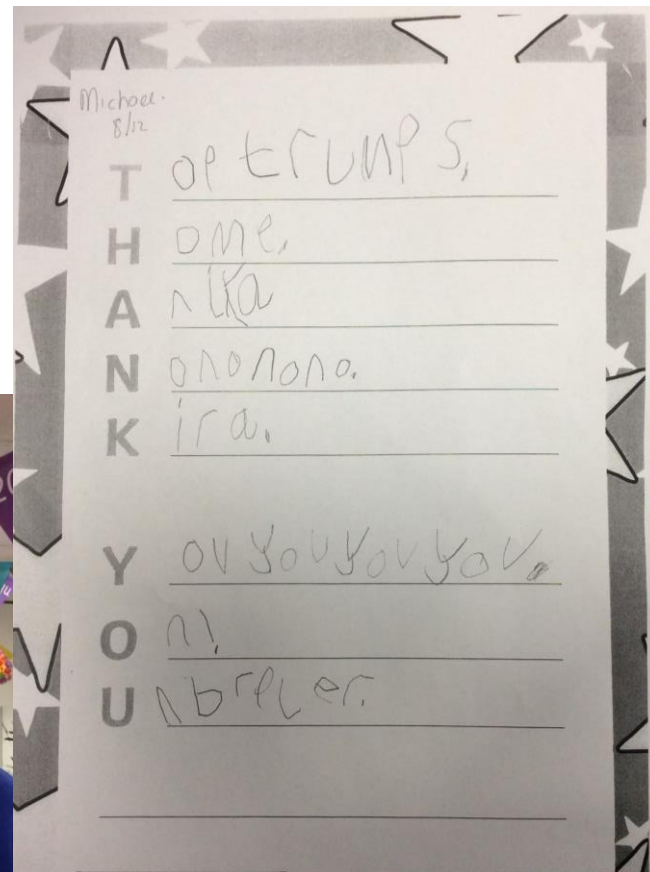 Michael.
8/12
T op trumps.
H ome.
A nika
N ononono.
K ira.
Y ou you you you.
O n!
U nbreler.